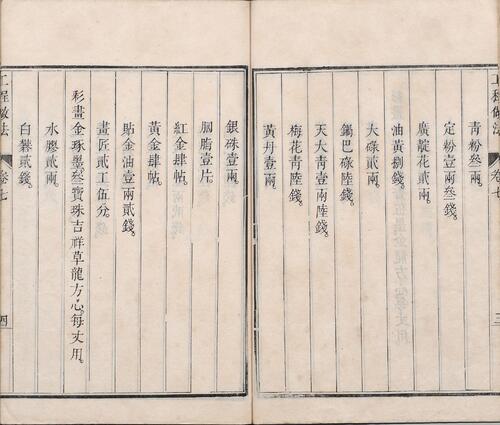 工程做法 卷七 三
青粉叁兩。
定粉壹兩叁錢。
廣靛花貳兩。
油黃捌錢。
大碌貳兩。
鍋巴碌陸錢。
天大青壹兩陸錢。
梅花青陸錢。
黃丹壹兩。
銀硃壹兩。
胭脂壹片。
紅金肆帖。
黃金肆帖。
貼金油壹兩貳錢。
畫匠貳工伍分。
彩畫金琢墨叁寶珠吉祥草龍方心。每丈用。
水膠貳兩。
白礬貳錢。
工程做法 卷七 四